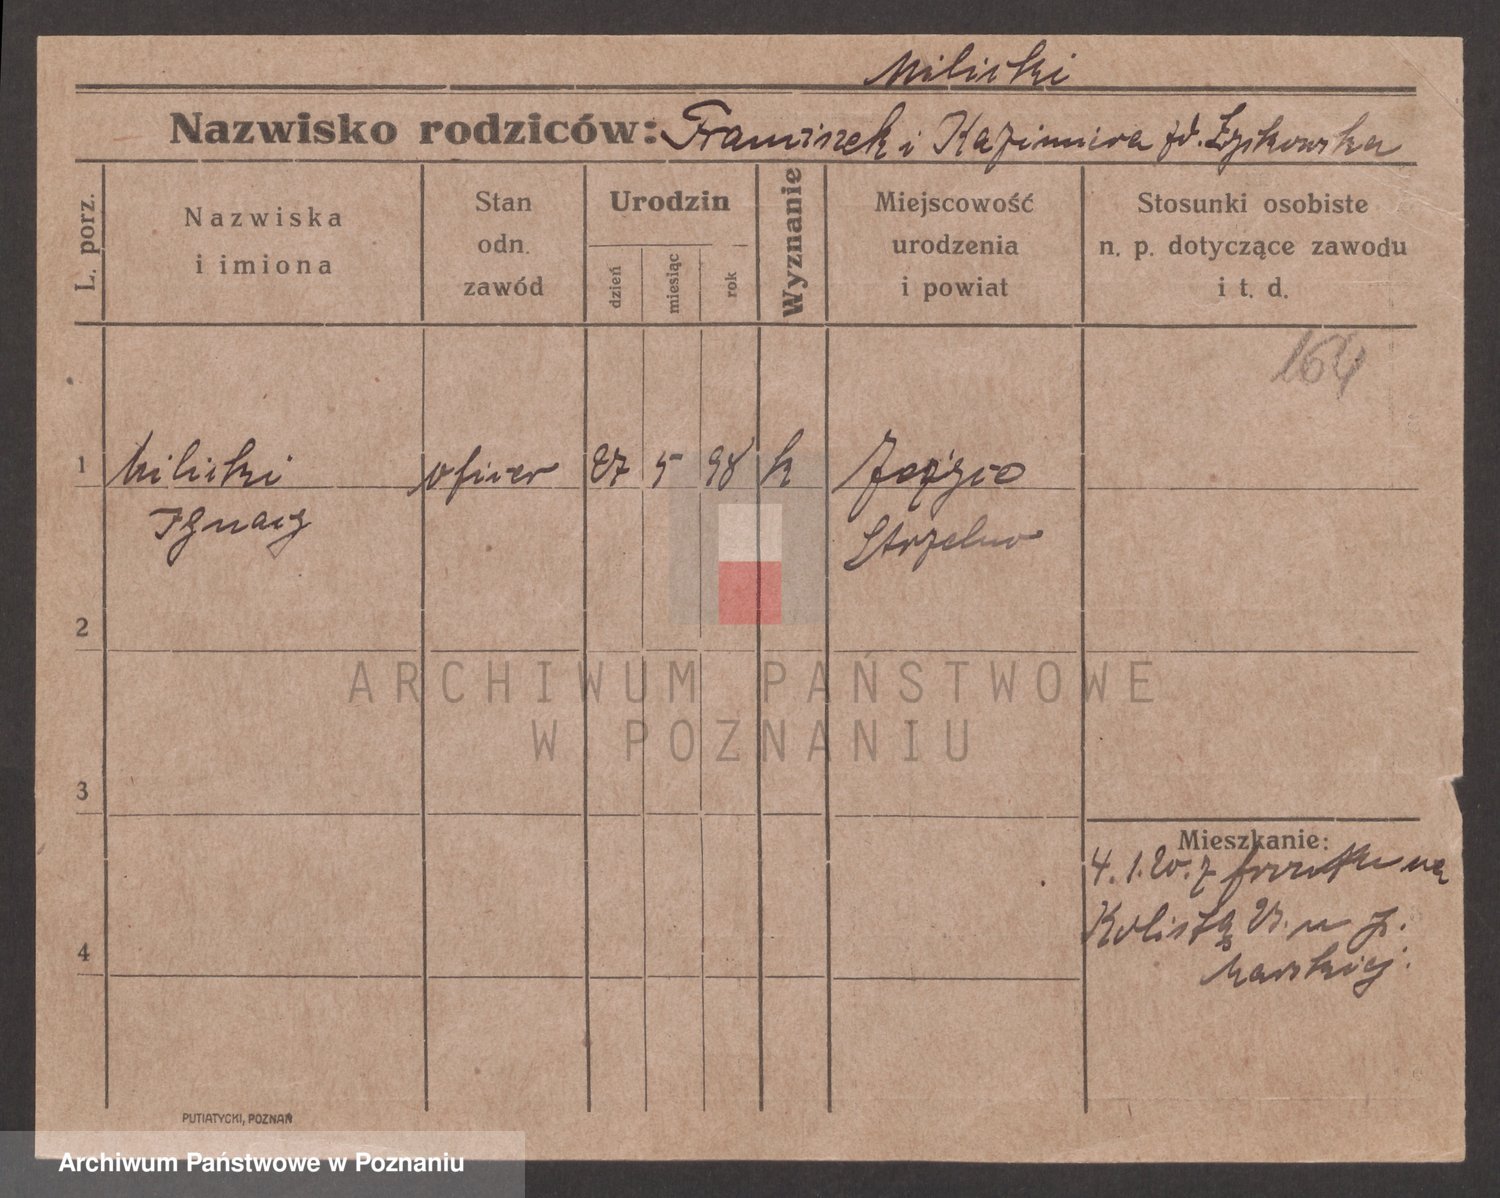 Milicki
Nazwisko rodziców: Franciszek i Kazimiera zd. Łyskowska
L. porz.
Nazwiska
i imiona
Stan
odn.
zawód
Urodzin
dzień
miesiąc
rok
Wyznanie
Miejscowość
urodzenia
i powiat
Stosunki osobiste
n. p. dotyczące zawodu
i t. d.
164
1 Milicki oficer 27 5 98 k
Ignacy Strzelno
2
3
4
Mieszkanie:
4.1.20. z na
PUTIATYCKI, POZNAŃ
ARCHIWUM PAŃSTWOWE
W POZNANIU
Archiwum Państwowe w Poznaniu